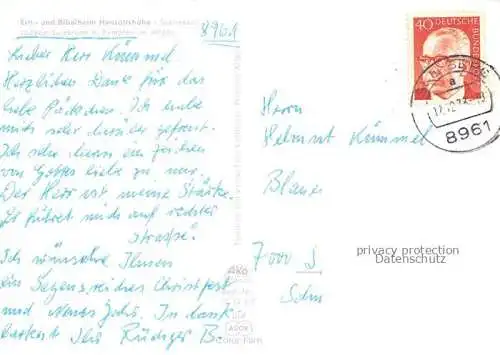 Erh.- und Bibelheim Hensoltshöhe
8961
Lieber Herr Kümmel
Herzlichen Dank für das
liebe Päckchen. Ich habe
mich sehr darüber gefreut.
Ich sehe darin ein Zeichen
von Gottes Liebe zu mir.
Der Herr ist meine Stärke.
Er führet mich auf rechter
Strasse.
Ich wünsche Ihnen
ein Segensreiches Christfest
und Neues Jahr. In Dank-
barkeit Ihr Rüdiger B.
40 DEUTSCHE BUNDESPOST
a
8961
Herrn
Helmut Kümmel
7000 S
privacy protection
Datenschutz